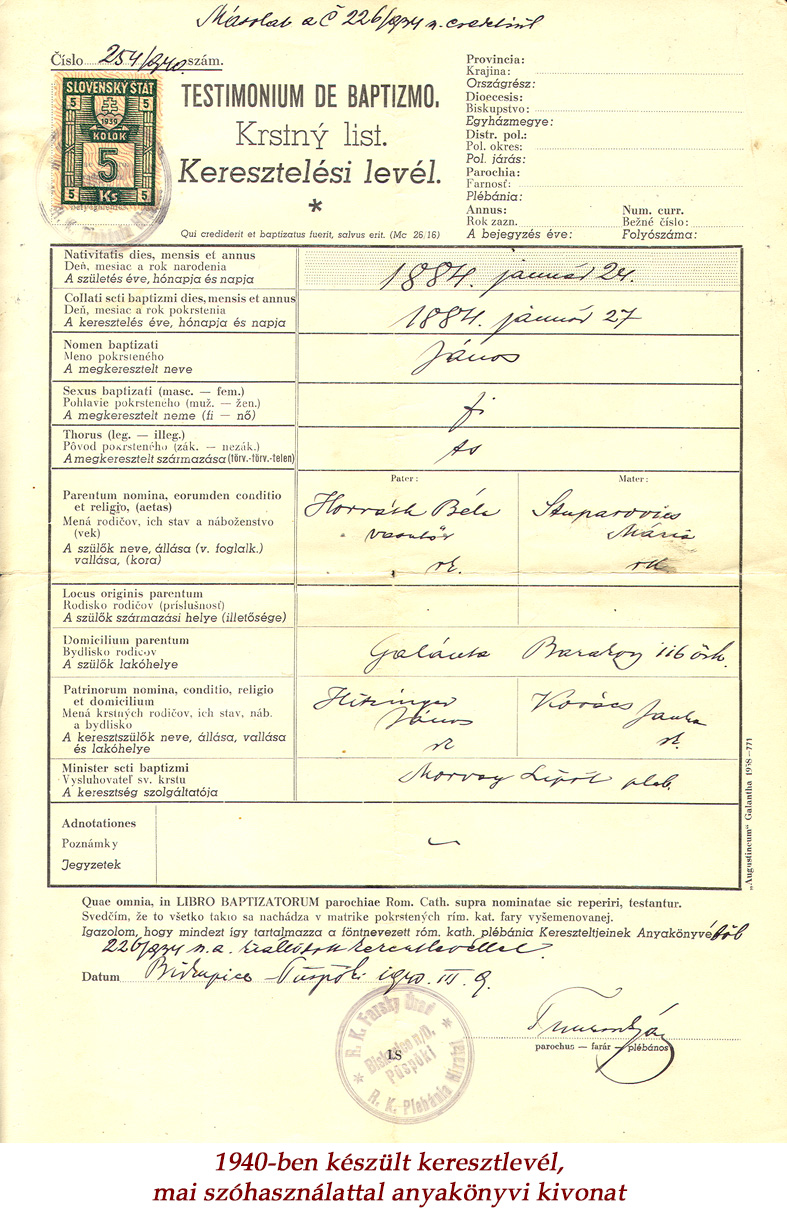 Másolat a Č 226/934 n.
Číslo 254/940. szám.
SLOVENSKÝ ŠTÁT
5 5
1939
KOLOK
5
5 Ks 5
TESTIMONIUM DE BAPTIZMO.
Krstný list.
Keresztelési levél.
*
Qui crediderit et baptizatus fuerit, salvus erit. (Mc 26/16)
Provincia:
Krajina:
Országrész:
Dioecesis:
Biskupstvo:
Egyházmegye:
Distr. pol.:
Pol. okres:
Pol. járás:
Parochia:
Farnosť:
Plébánia:
Annus: Num. curr.
Rok zazn. Bežné číslo:
A bejegyzés éve: Folyószáma:
Nativitatis dies, mensis et annus
Deň, mesiac a rok narodenia
A születés éve, hónapja és napja
1884. január 24.
Collati seti baptizmi dies, mensis et annus
Deň, mesiac a rok pokrstenia
A keresztelés éve, hónapja és napja
1884. január 27
Nomen baptizati
Meno pokrsteného
A megkeresztelt neve
János
Sexus baptizati (masc. — fem.)
Pohlavie pokrsteného (muž. — žen.)
A megkeresztelt neme (fi — nő)
fi
Thorus (leg. — illeg.)
Pôvod pokrsteného (zák. — nezák.)
A megkeresztelt származása (törv.-törv.-telen)
ts
Parentum nomina, eorumden conditio
et religio, (aetas)
Mená rodičov, ich stav a náboženstvo
(vek)
A szülők neve, állása (v. foglalk.)
vallása, (kora)
Pater:
Horváth Béla
vasutőr
rk.
Mater:
Stuparovics
Mária
rk
Locus originis parentum
Rodisko rodičov (príslušnosť)
A szülők származási helye (illetősége)
Domicilium parentum
Bydlisko rodičov
A szülők lakóhelye
Galánta 116 őrh.
Patrinorum nomina, conditio, religio
et domicilium
Mená krstných rodičov, ich stav, náb.
a bydlisko
A keresztszülők neve, állása, vallása
és lakóhelye
Hitzinger
János
rk
Kovács Janka
rk.
Minister seti baptizmi
Vysluhovateľ sv. krstu
A keresztség szolgáltatója
Morvay Lipót pleb.
Adnotationes
Poznámky
Jegyzetek
„Augustineum" Galantha 1938—771
Quae omnia, in LIBRO BAPTIZATORUM parochiae Rom. Cath. supra nominatae sic reperiri, testantur.
Svedčím, že to všetko takto sa nachádza v matrike pokrstených rím. kat. fary vyšemenovanej.
Igazolom, hogy mindezt így tartalmazza a föntnevezett róm. kath. plébánia Kereszteltjeinek Anyakönyvéből
226/934 n. a. kiállított keresztlevéllel.
Datum Biskupice Püspöki 1940. III. 9.
R. K. Farský Úrad
Biskupice n/D.
Püspöki
R. K. Plébánia Hivatal
LS
parochus — farár — plébános
1940-ben készült keresztlevél,
mai szóhasználattal anyakönyvi kivonat